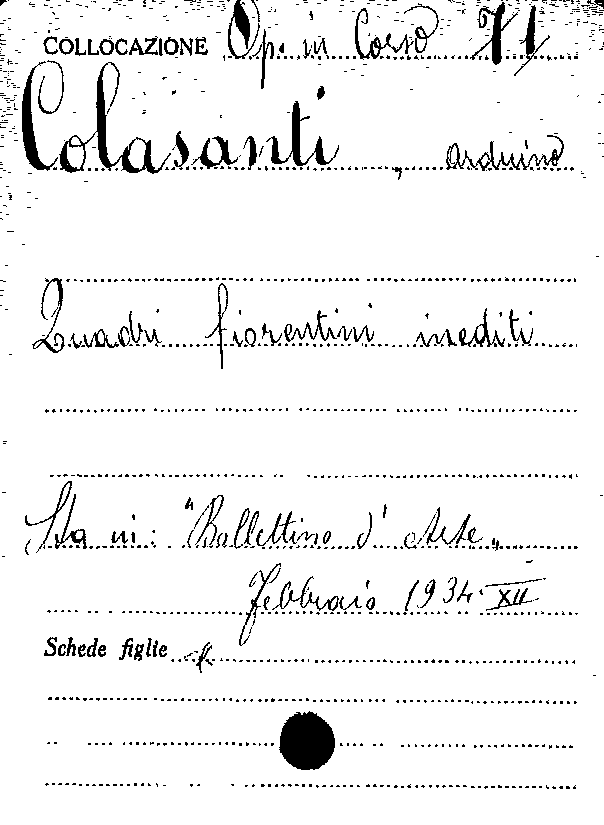 COLLOCAZIONE Op. in Corso 71
Colasanti, Arduino
Quadri fiorentini inediti
Sta in: "Bollettino d'Arte„
Febbraio 1934 - XII
Schede figlie